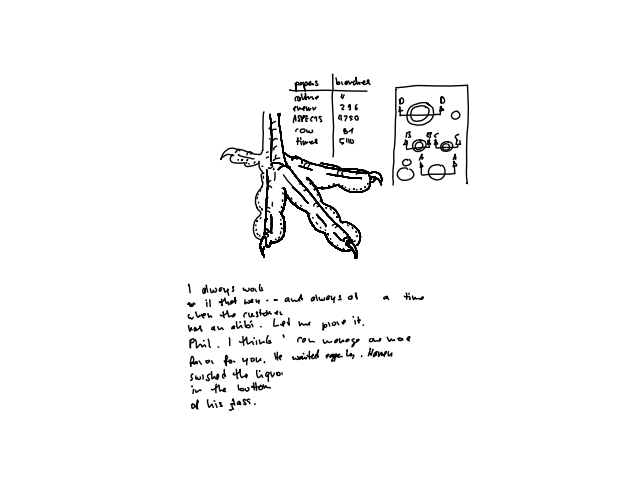 papers branches
culture 4
enemy 296
ASPECTS 9750
row 81
times 510
D D
B B C C
A A
I always work
it that way -- and always at a time
when the customer
has an alibi. Let me prove it,
Phil. I think I can manage one more
favor for you. He waited eagerly. Homer
swished the liquor
in the bottom
of his glass.